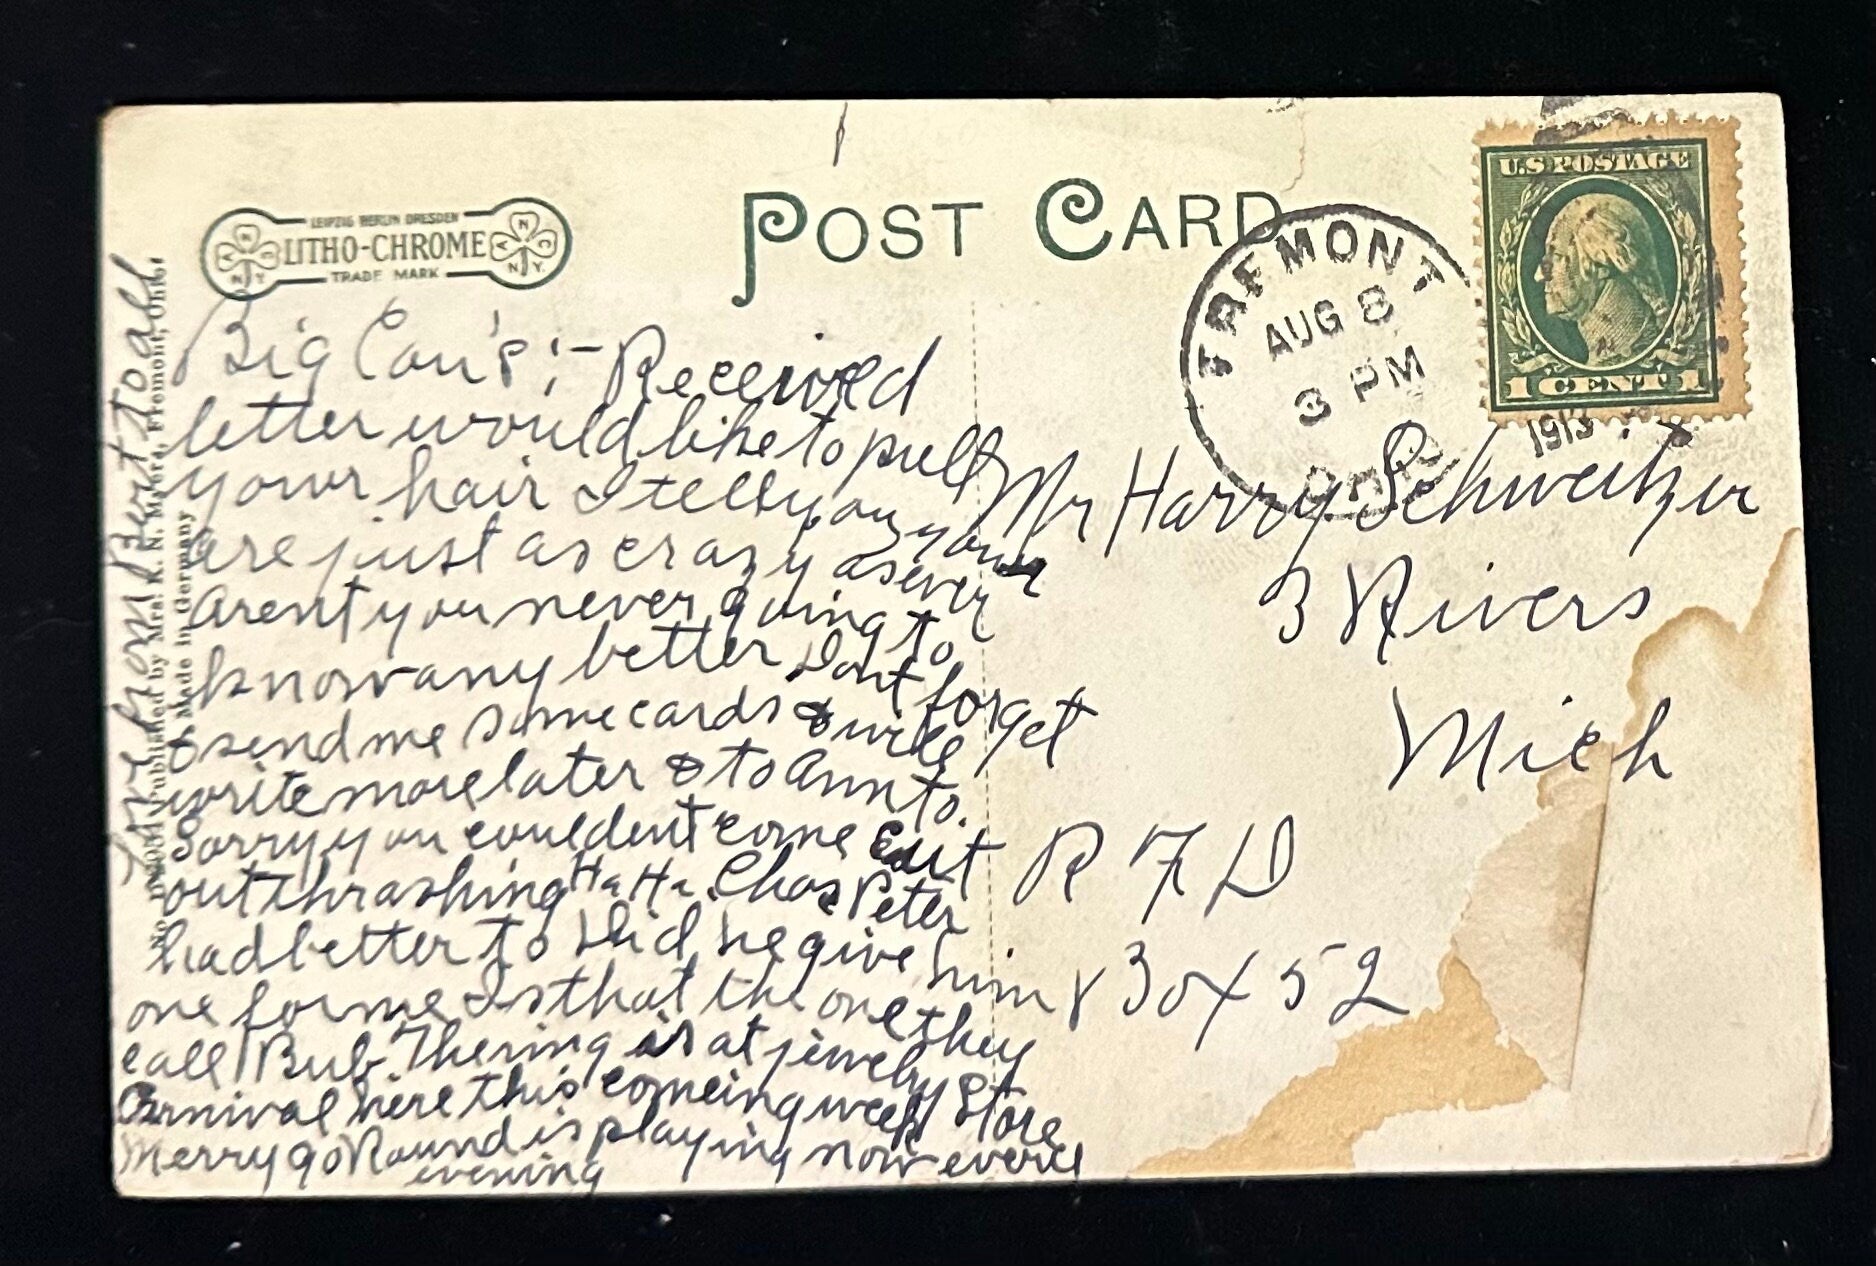 POST CARD
LEIPZIG BERLIN DRESDEN
LITHO-CHROME
TRADE MARK
U.S. POSTAGE
1 CENT 1
FREMONT
AUG 8
3 PM
1913
Big Cou's :- Received
letter would like to pull
your hair I tell you your
are just as crazy as ever
arent you never going to
know any better dont forget
& send me some cards & will
write more later & to Ann to.
Sorry you couldent come
out thrashing Ha Ha. Chas Peter
had better to did he give him
one for me Is that the one they
call Bub. The ring is at jewelry Store
Carnival here this comeing week
Merry go Round is playing now every
evening
Love from Bert to all
Published by Mrs. R. N. Moore, Fremont, Ohio
Made in Germany
Mr Harry Schweitzer
3 Rivers
Mich
R F D
30 X 52